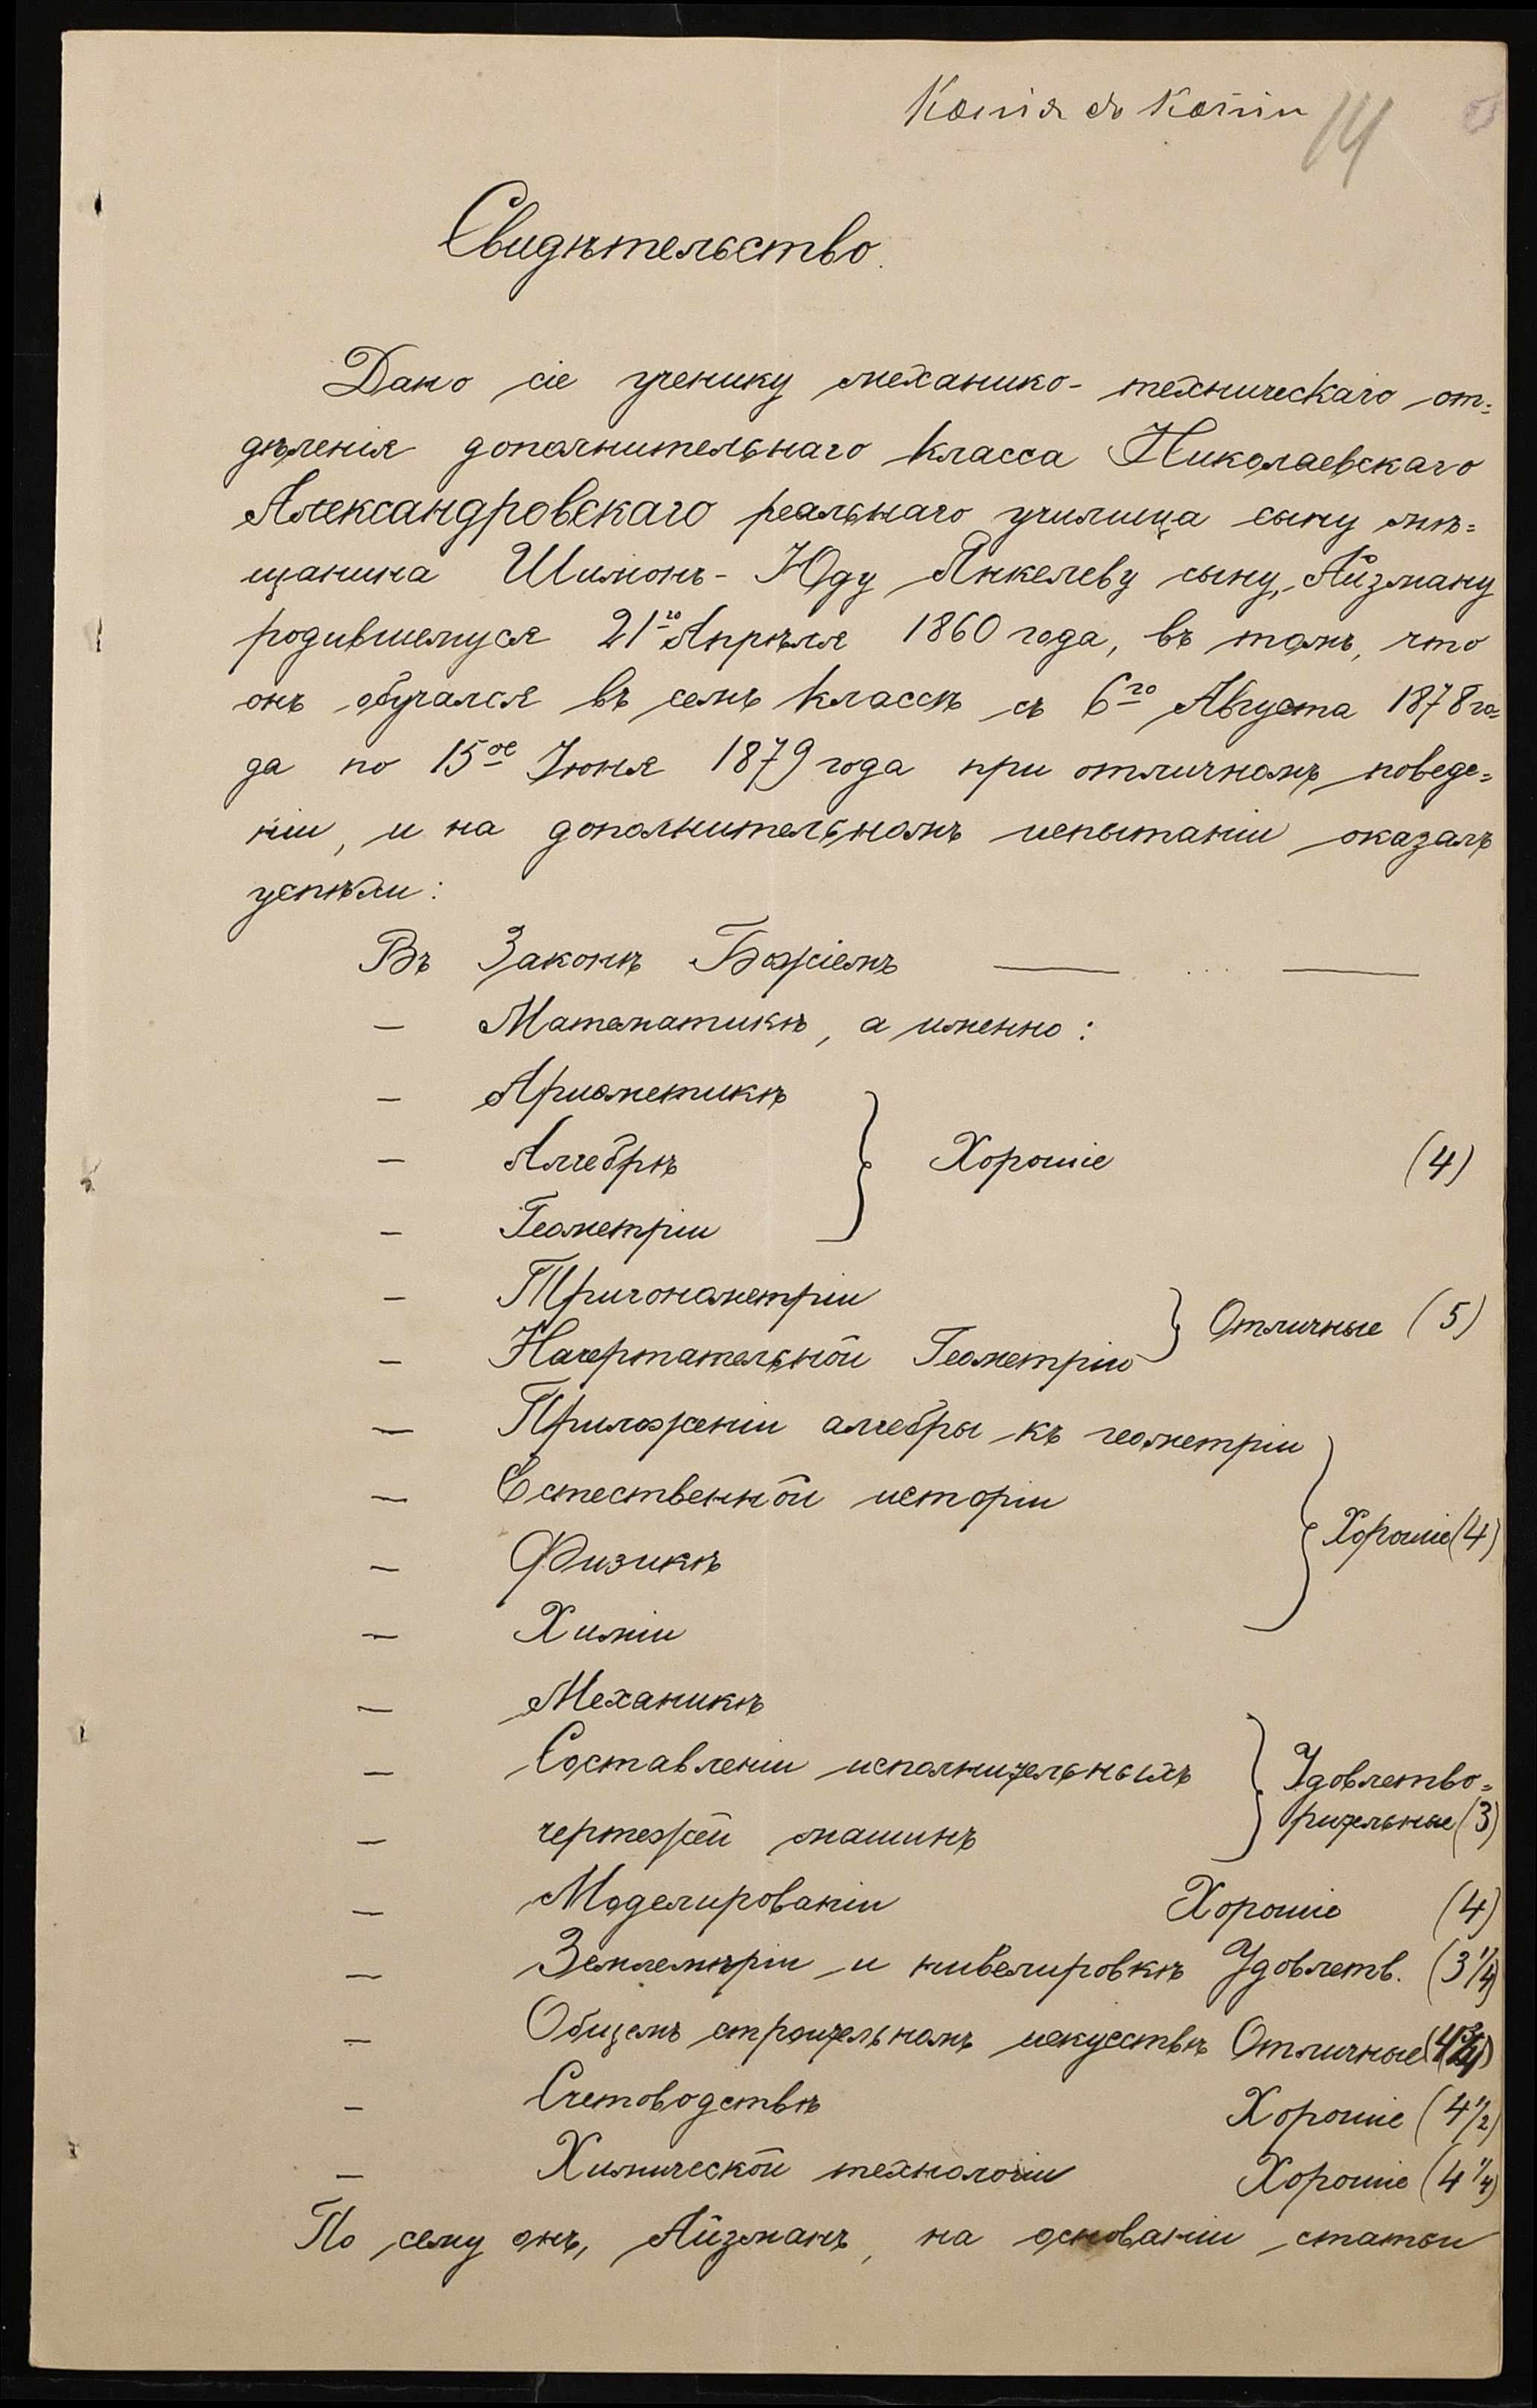 Копія съ Копіи
14
Свидѣтельство.
Дано сіе ученику механико-техническаго от=
дѣленія дополнительнаго класса Николаевскаго
Александровскаго реальнаго училища сыну мѣ=
щанина Шимонъ-Юду Янкелеву сыну, Айзману
родившемуся 21го Апрѣля 1860 года, въ томъ, что
онъ обучался въ семъ классѣ съ 6го Августа 1878 го=
да по 15ое Іюня 1879 года при отличномъ поведе=
ніи, и на дополнительномъ испытаніи оказалъ
успѣхи:
Въ Законѣ Божіемъ — .... —
— Математикѣ, а именно:
— Ариѳметикѣ
— Алгебрѣ } Хорошіе (4)
— Геометріи
— Тригонометріи
} Отличные (5)
— Начертательной Геометріи
— Приложеніи алгебры къ геометріи
— Естественной исторіи
} Хорошіе (4)
— Физикѣ
— Химіи
— Механикѣ
— Составленіи исполнительныхъ } Удовлетво=
рительные (3)
— чертежей машинъ
— Моделированіи Хорошіе (4)
— Землемѣріи и нивелировкѣ Удовлетв. (3 1/4)
— Общемъ строительномъ искусствѣ Отличные (4 3/4)
— Счетоводствѣ Хорошіе (4 1/2)
— Химической технологіи Хорошіе (4 1/4)
По сему онъ, Айзманъ, на основаніи статьи